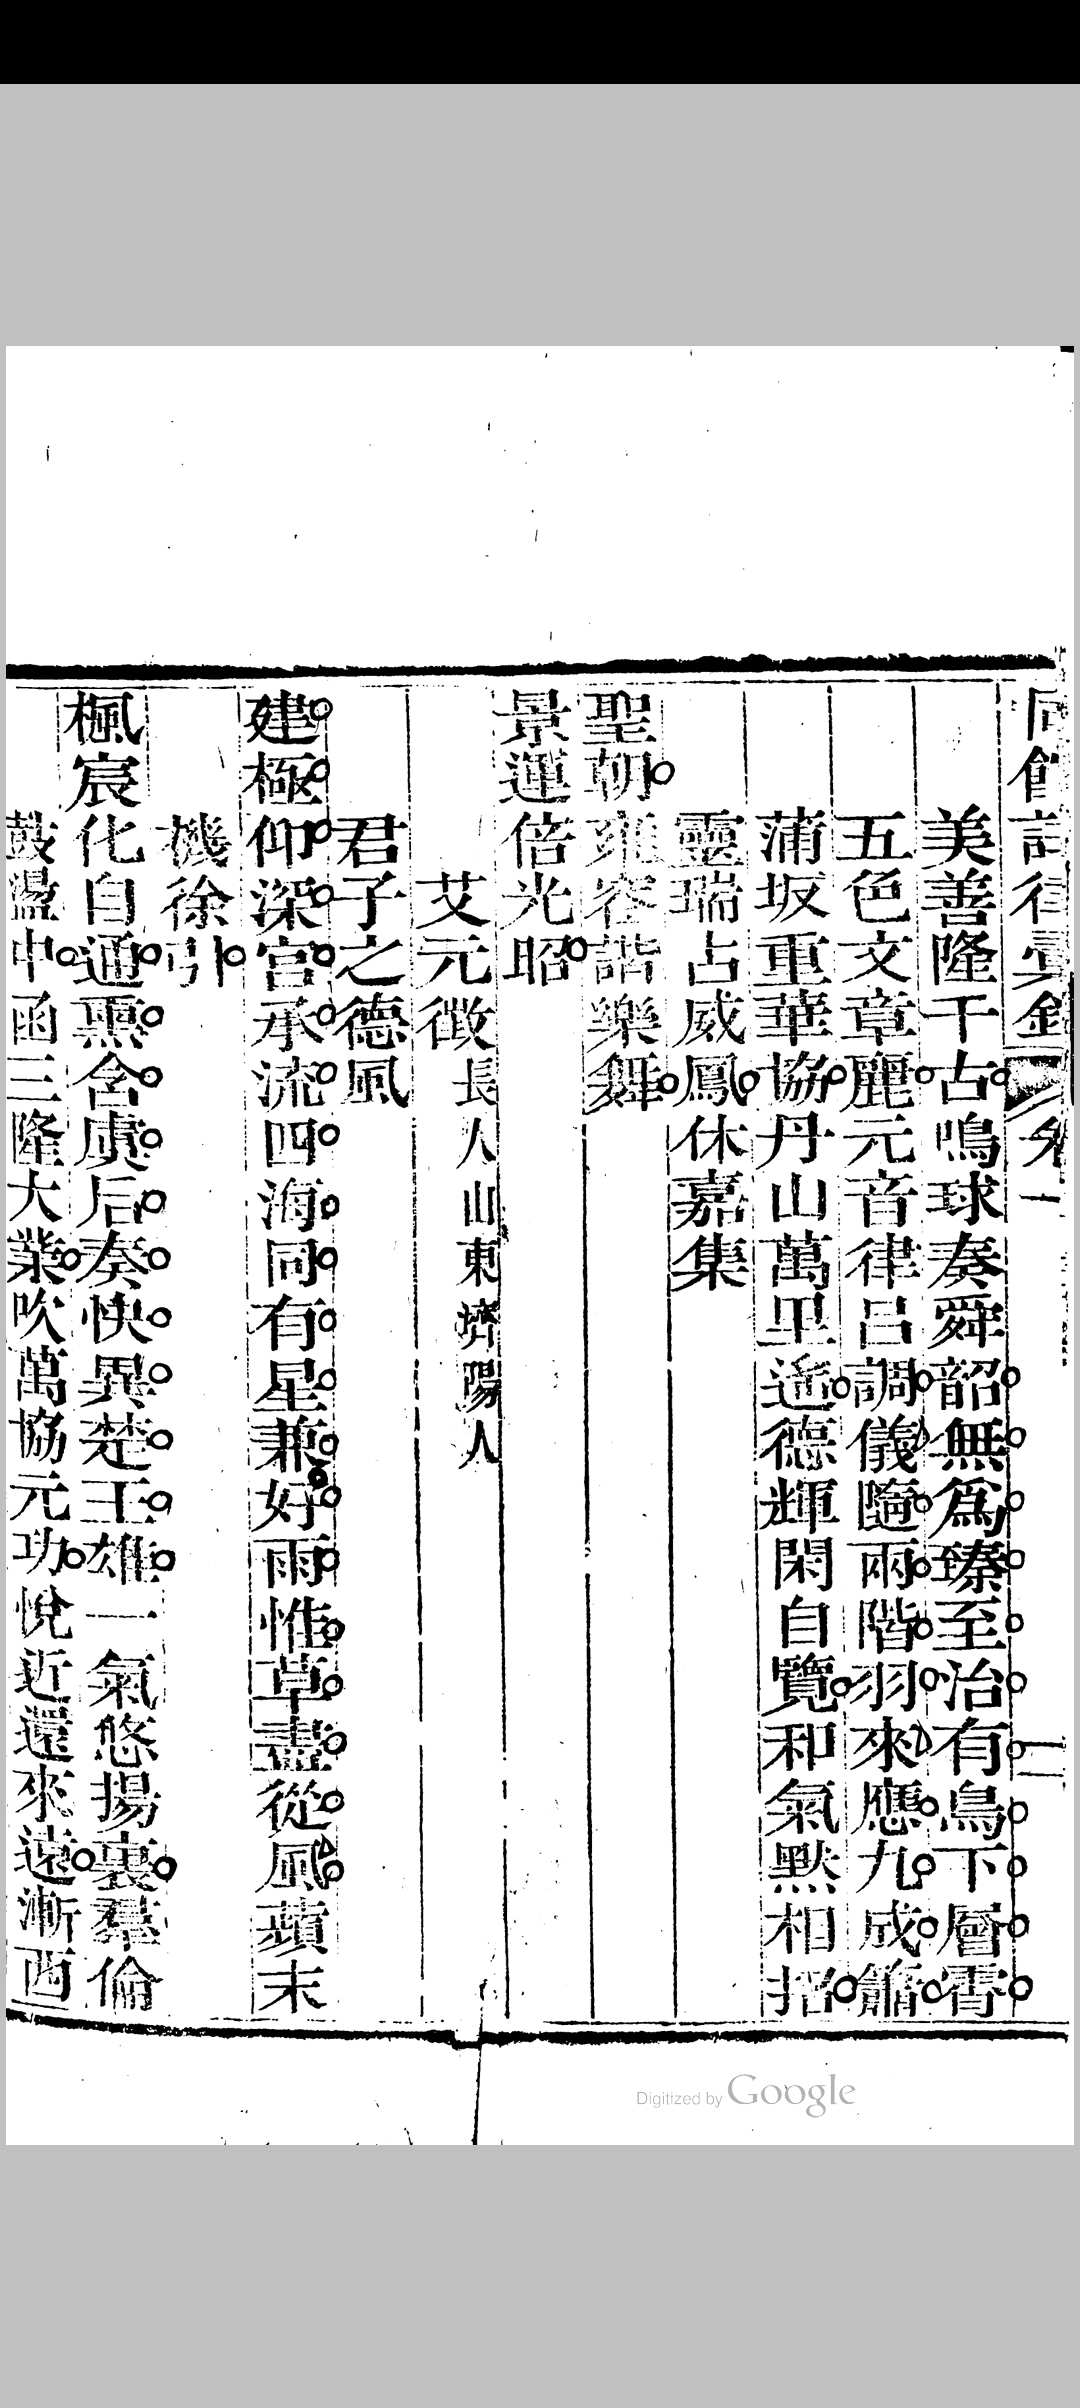 同館詩律彙鈔 卷一 二
美善隆千古鳴球奏舜韶無爲臻至治有鳥下層霄
五色文章麗元音律呂調儀隨兩階羽來應九成簫
蒲坂重華協丹山萬里遙德輝閑自覽和氣默相招
靈瑞占威鳳休嘉集
聖朝雍容諧樂舞
景運倍光昭
艾元徵長人山東濟陽人
君子之德風
建極仰深宮承流四海同有星兼好雨惟草盡從風蘋末
機徐引
楓宸化自通熏含虞后奏快異楚王雄一氣悠揚裏羣倫
鼓盪中函三隆大業吹萬協元功悅近還來遠漸西
Digitized by Google